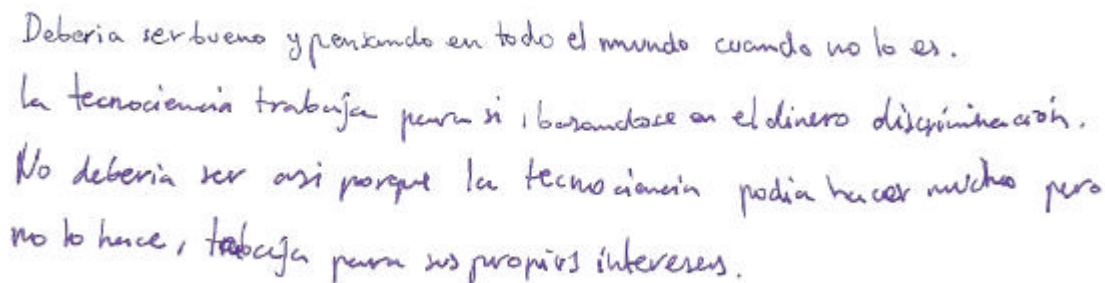 Deberia ser bueno y pensando en todo el mundo cuando no lo es.
la tecnociencia trabaja para si, basandose en el dinero discriminación.
No deberia ser asi porque la tecnociencia podia hacer mucho pero
no lo hace, trabaja para sus propios intereses.